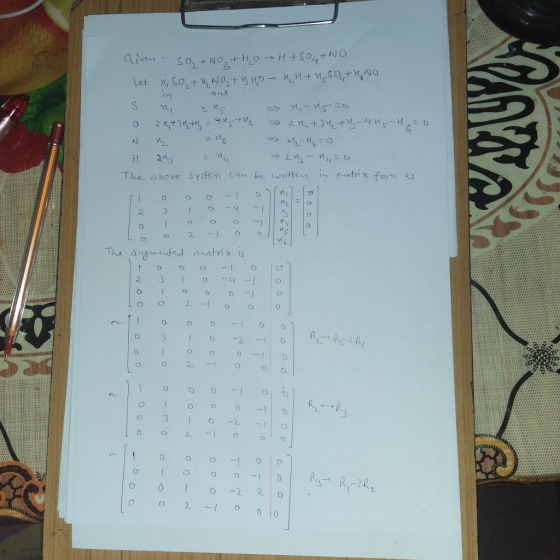 Given: SO2 + NO3 + H2O → H + SO4 + NO
Let x1SO2 + x2NO3 + x3H2O → x4H + x5SO4 + x6NO
in out
S x1 = x5 ⇒ x1 - x5 = 0
O 2x1+3x2+x3 = 4x5+x6 ⇒ 2x1+3x2+x3-4x5-x6 = 0
N x2 = x6 ⇒ x2-x6 = 0
H 2x3 = x4 ⇒ 2x3 - x4 = 0
The above system can be written in matrix form as
[1 0 0 0 -1 0] [x1] = [0]
[2 3 1 0 -4 -1] [x2] [0]
[0 1 0 0 0 -1] [x3] [0]
[0 0 2 -1 0 0] [x4] [0]
[x5]
[x6]
The augmented matrix is
[1 0 0 0 -1 0 | 0]
[2 3 1 0 -4 -1 | 0]
[0 1 0 0 0 -1 | 0]
[0 0 2 -1 0 0 | 0]
~ [1 0 0 0 -1 0 | 0]
[0 3 1 0 -2 -1 | 0] R2 → R2-2R1
[0 1 0 0 0 -1 | 0]
[0 0 2 -1 0 0 | 0]
~ [1 0 0 0 -1 0 | 0]
[0 1 0 0 0 -1 | 0] R2 ↔ R3
[0 3 1 0 -2 -1 | 0]
[0 0 2 -1 0 0 | 0]
~ [1 0 0 0 -1 0 | 0]
[0 1 0 0 0 -1 | 0] R3 → R3-3R2
[0 0 1 0 -2 2 | 0]
[0 0 2 -1 0 0 | 0]